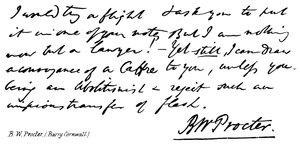 I would try a flight & ask you to put
it in one of your notes, But I am nothing
now but a lawyer! — Yet still, I can draw
a conveyance of a Caffre to you, unless you
being an Abolitionist & reject such an
impious transfer of flesh.
BW Procter.
B. W. Procter. (Barry Cornwall)